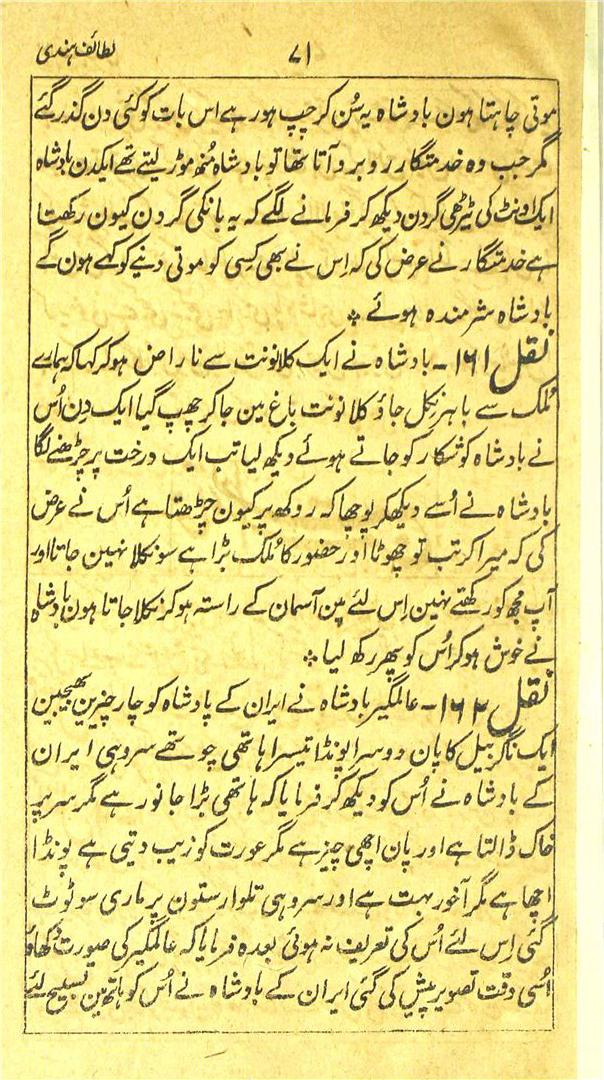 لطائف ہندی
۷۱
موتی چاہتا ہون بادشاہ یہ سُن کر چپ ہو رہے اس بات کو کئی دن گذر گئے
مگر جب وہ خدمتگار روبرو آتا تھا تو بادشاہ مُنھ موڑ لیتے تھے ایکدن بادشاہ
ایک اونٹ کی ٹیڑھی گردن دیکھ کر فرمانے لگے کہ یہ بانکی گردن کیون رکھتا
ہے خدمتگار نے عرض کی کہ اِس نے بھی کِسی کو موتی دینے کو کہے ہون گے
بادشاہ شرمندہ ہوئے *
نقل ۱۶۱ - بادشاہ نے ایک کلانونت سے ناراض ہو کر کہا کہ ہمارے
مُلک سے باہر نِکل جاؤ کلانونت باغ مین جا کر چھپ گیا ایک دِن اُس
نے بادشاہ کو شکار کو جاتے ہوئے دیکھ لیا تب ایک درخت پر چڑھنے لگا
بادشاہ نے اُسے دیکھکر پوچھا کہ روکھ پر کیون چڑھتا ہے اُس نے عرض
کی کہ میرا کرتب تو چھوٹا اور حضور کا مُلک بڑا ہے سو نکلا نہین جاتا اور
آپ مجھ کو رکھتے نہین اِس لئے مین آسمان کے راستہ ہو کر نکلا جاتا ہون بادشاہ
نے خوش ہو کر اُس کو پھر رکھ لیا *
نقل ۱۶۲ - عالمگیر بادشاہ نے ایران کے پادشاہ کو چار چیزین بھیجین
ایک ناگر بیل کا پان دوسرا پونڈا تیسرا ہاتھی چوتھے سروہی ایران
کے بادشاہ نے اُس کو دیکھ کر فرمایا کہ ہاتھی بڑا جانور ہے مگر سر پر
خاک ڈالتا ہے اور پان اچھی چیز ہے مگر عورت کو زیب دیتی ہے پونڈا
اچھا ہے مگر آخور بہت ہے اور سروہی تلوار ستون پر ماری سو ٹوٹ
گئی اِس لئے اُس کی تعریف نہ ہوئی بعدہ فرمایا کہ عالمگیر کی صورت دکھاؤ
اُسی وقت تصویر پیش کی گئی ایران کے بادشاہ نے اُس کو ہاتھ مین تسبیح لئے